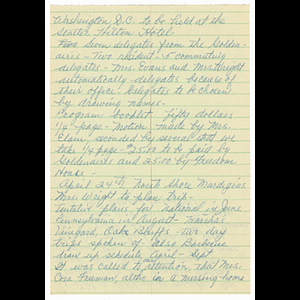 Washington D.C. to be held at the
Statler Hilton Hotel
Five been delegates from the Golden-
aires - Two resident - 5 community
delegates - Mrs. Evans and Mrs Wright
automatically delegates because of
their office. delegates to be chosen
by drawing names.
Program booklet fifty dollars
1/4 page - Motion made by Mrs.
Clain, seconded by several that we
take 1/4 page - $25.00 to be paid by
Goldenaires and 25.00 by Freedom
House -
April 24th North Shore Mardigras
Mrs. Wright to plan trip -
Tentative plans for national in June
Pennsylvania in August - Marthas
Vineyard, Oak Bluffs - Two day
trips spoken of - also Barbecue
draw up schedule April - Sept
It was called to our attention, that Mrs.
Cora Freeman, also in a nursing home